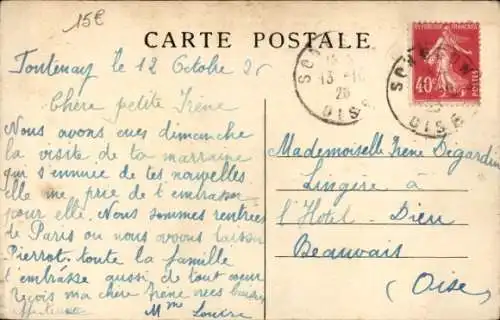 15€
CARTE POSTALE
Fontenay le 12 Octobre 26
Chère petite Irène
Nous avons eues dimanche
la visite de ta marraine
qui s'ennuie de tes nouvelles
elle me prie de t'embrasser
pour elle. Nous sommes rentrées
de Paris ou nous avons laissé
Pierrot. toute la famille
t'embrasse aussi de tout cœur
Reçois ma chère Irène mes baisers
affectueux
Mme Louise
13 -10
26
OISE
40c
OISE
Mademoiselle Irène Degardin
Lingère à
l'Hotel-Dieu
Beauvais
(Oise)